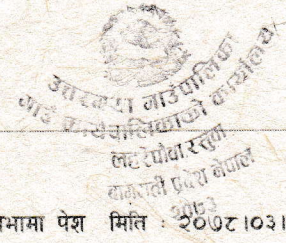 उत्तरगया गाउँपालिका
गाउँ कार्यपालिकाको कार्यालय
लहरेपौवा, रसुवा
बागमती प्रदेश नेपाल
२०७३
भामा पेश मिति : २०७८।०३।